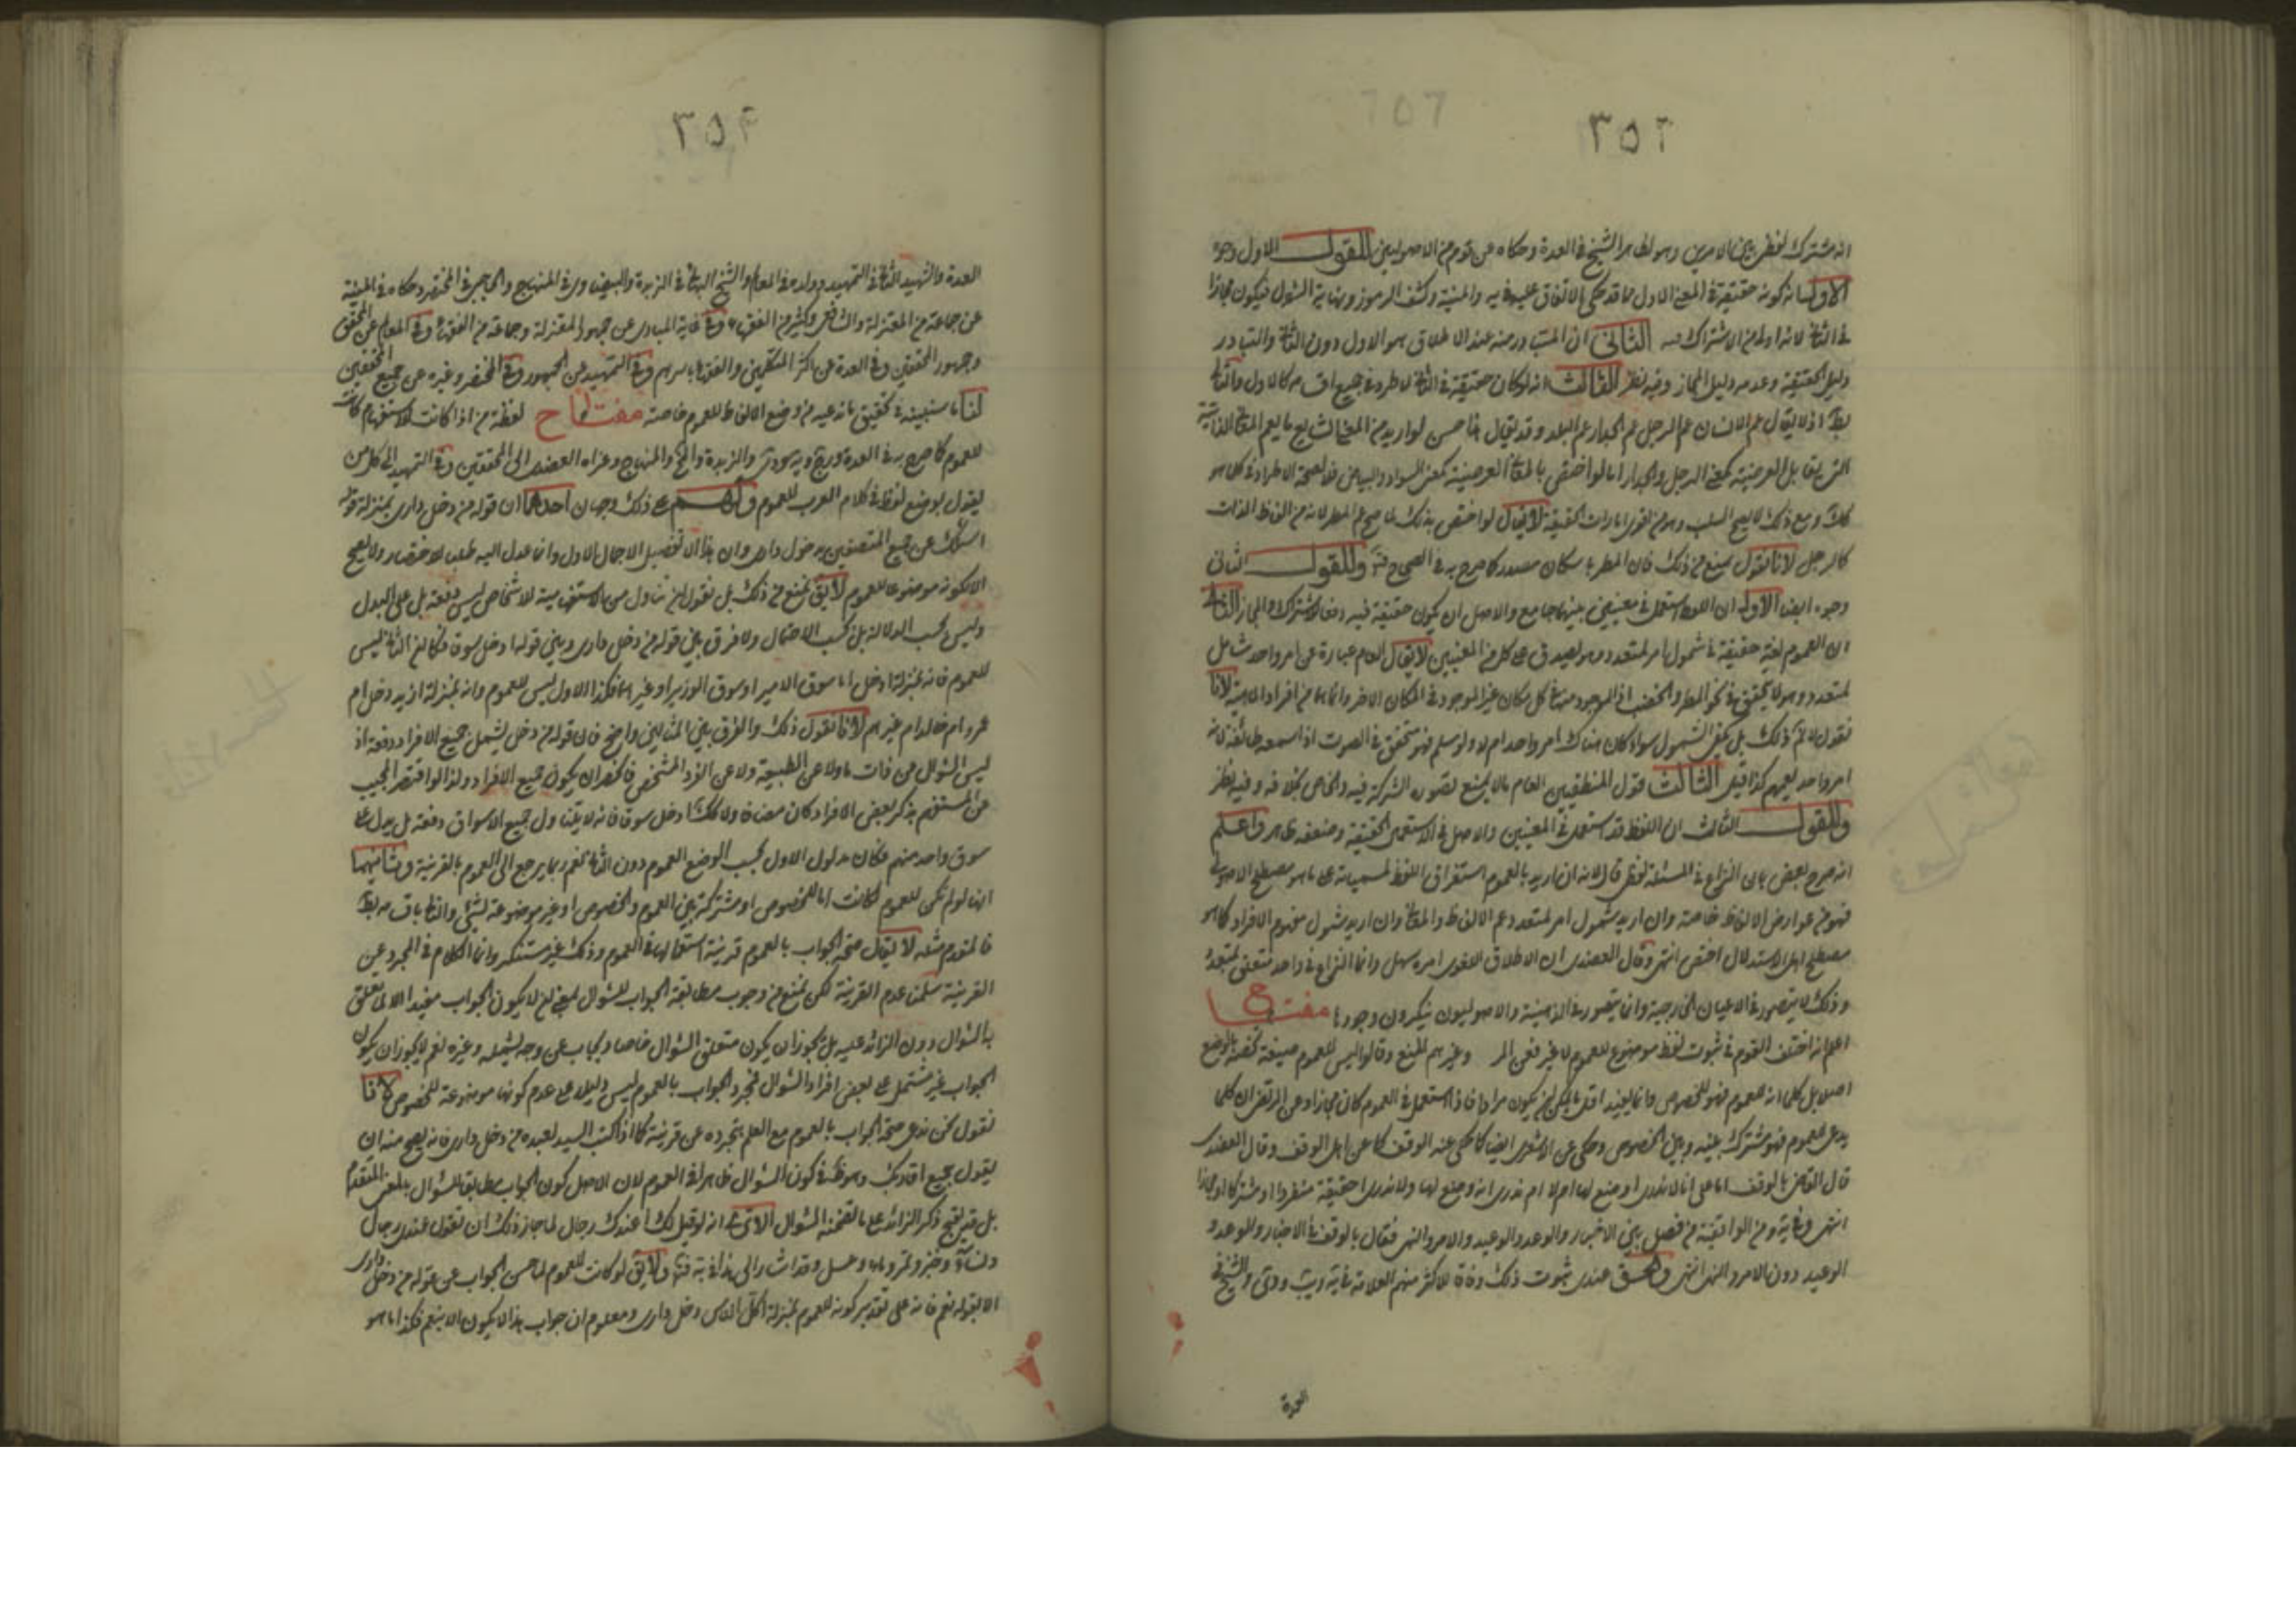 ٣٥٢
انه مشترك لفظى بين الامرين وهو الظاهر الشيخ فى العدة وحكاه عن قوم من الاصوليين للقول الاول وجوه
الاول انه كونه حقيقة فى المعنى الاول مما قد حكى الاتفاق عليه فى يه والمنية وكشف الرموز ونهاية السؤل فيكون مجازا
فى الثانى لانه اولى من الاشتراك الثانى ان المتبادر منه عند الاطلاق هو الاول دون الثانى والتبادر
دليل الحقيقة وعدمه دليل المجاز وفيه نظر الثالث انه لو كان حقيقة فى الثانى لاطرد فى جميع اقسامه كالاول والتالى
بط اذ لا يقال عم الانسان عم الرجل عم الجدار عم البلد وقد يقال
التى يقابل العرضية كمعنى الرجل والجدار اما لو اختص بالمعانى العرضية كمعنى السواد والبياض فلا لصحة الاطراد فى كل ما هو
كك ومع ذلك لا يصح السلب وهو من اقوى امارات الحقيقة لا يقال لو اختص بذلك لما صح عم المطر لانه من الفاظ الذات
كالرجل لانا نقول نمنع من ذلك فان المطر باسكان مصدر كما صرح به فى الصحاح فت وللقول الثانى
وجوه ايضا الاول ان اللفظ استعمل فى معنيين بينهما جامع والاصل ان يكون حقيقة فيه دفعا للاشتراك والمجاز الثانى
ان العموم لغة حقيقة فى شمول امر لمتعدد وهو يصدق على كل من المعنيين لا يقال العام عبارة عن امر واحد شامل
لمتعدد وهو لا يتحقق فى نحو المطر والخصب اذ الموجود منه فى كل مكان غير الموجود فى المكان الاخر وانما هما من افراد الماهية لانا
نقول لا نم ذلك بل يكفى الشمول سواء كان هناك امر واحد ام لا ولو سلم فهو متحقق فى الصوت اذا اسمعه طائفة لانه
امر واحد يعمهم كذا قيل الثالث قول المنطقيين العام ما لا يمنع تصوره الشركة فيه والخاص بخلافه وفيه نظر
وللقول الثالث ان اللفظ قد استعمل فى المعنيين والاصل فى الاستعمال الحقيقة وضعفه ظاهر واعلم
انه صرح بعض بان النزاع فى المسئلة لفظى قال لانه ان اريد بالعموم استغراق اللفظ لمسمياته على ما هو مصطلح الاصولى
فهو من عوارض الالفاظ خاصة وان اريد شمول امر لمتعدد عم الالفاظ والمعانى وان اريد شمول مفهوم الافراد كما هو
مصطلح اهل الاستدلال اختص انتهى وقال العضدى ان الاطلاق اللغوى امره سهل وانما النزاع فى واحد متعلق بمتعدد
وذلك لا يتصور فى الاعيان الخارجية وانما يتصور فى الذهنية والاصوليون ينكرون وجودها مفتاح
اعلم انه اختلف القوم فى ثبوت لفظ موضوع للعموم لا غير فعن المر وغيرهم المنع وقالوا ليس للعموم صيغة تخصه بالوضع
اصلا بل كلما انه للعموم فهو للخصوص وانما يفيد اقل ما يمكن ان يكون مرادا فاذا استعمل فى العموم كان مجازا وعن المرتضى ان كلما
يدعى للعموم فهو مشترك بينه وبين الخصوص وحكى عن الاشعرى ايضا كما حكى عنه الوقف كما عن اهل الوقف وقال العضدى
قال القاضى بالوقف اما على انا لا ندرى اوضع لها ام لا ام ندرى انه وضع لها ولا ندرى احقيقة منفردا او مشتركا او مجازا
انتهى وفى غاية ومن الواقفية من فصل بين الاخبار والوعد والوعيد والامر والنهى فقال بالوقف فى الاخبار والوعد و
الوعيد دون الامر والنهى انتهى والحق عندى ثبوت ذلك وفاقا للاكثر منهم العلامة فى يه ويب ودى والشيخ فى
العدة
٣٥٤
العدة والشهيد الثانى فى التمهيد وولده فى المعالم والشيخ البهائى فى الزبدة والبيضاوى فى المنهاج والحاجبى فى المختصر وحكاه فى المنية
عن جماعة من المعتزلة والشافعى وكثير من الفقهاء وفى غاية المبادى عن جمهور المعتزلة وجماعة من الفقهاء وفى المعالم عن المحقق
وجمهور المحققين وفى العدة عن اكثر المتكلمين والفقهاء باسرهم وفى التمهيد عن الجمهور وفى المختصر وغيره عن جميع المحققين
لنا ما سنبينه فى تحقيق ما ندعيه من وضع الالفاظ للعموم خاصة مفتاح لفظة من اذا كانت للاستفهام كانت
للعموم كما صرح به فى العدة ويه ودى والزبدة والمنهاج وعزاه العضدى الى المحققين وفى التمهيد الى كل من
يقول بوضع لفظ فى كلام العرب للعموم ولهم على ذلك وجهان احدهما ان قوله من دخل دارى بمنزلة قوله
اسئلك عن جميع المتصفين بدخول دارى وان هذا الا تفصيل لاجمال الاول وانما عدل اليه طلبا للاختصار ولا يصح
الا لكونه موضوعا للعموم لا يق نمنع من ذلك بل نقول ان تناول من الاستفهامية للاشخاص ليس دفعة بل على البدل
وليس بحسب الدلالة بل بحسب الاحتمال ولا فرق بين قوله من دخل دارى وبين قوله ادخل سوقا فكما ان الثانى ليس
للعموم فانه بمنزلة ادخل اما سوق الامير او سوق الوزير او غيرهما فكذا الاول ليس للعموم وانه بمنزلة ازيد دخل ام
عمرو ام خالد ام غيرهم لانا نقول ذلك والفرق بين المثالين واضح فان قوله من دخل يشمل جميع الافراد دفعة اذ
ليس السؤال عن ذات ما ولا عن الطبيعة ولا عن الفرد المشخص فانحصر ان يكون جميع الافراد ولذا لو اقتصر المجيب
عن المستفهم بذكر بعض الافراد كان مضافا ولا كك ادخل سوقا فانه لا يتناول جميع الاسواق دفعة بل يدل على
سوق واحد منهم فكان مدلول الاول بحسب الوضع العموم دون الثانى نعم ربما يرجع الى العموم بالقرينة وثانيهما
انها لو لم تكن للعموم لكانت اما للخصوص او مشتركة بين العموم والخصوص او غير موضوعة لشئ والتالى باقسامه بط
فالمقدم مثله لا يقال صحة الجواب بالعموم قرينة استعمالها فى العموم وذلك غير مستنكر وانما الكلام فى المجرد عن
القرينة سلمنا عدم القرينة لكن نمنع من وجوب مطابقة الجواب للسؤال بمعنى ان لا يكون الجواب مفيدا الا لما يتعلق
بالسؤال دون الزائد عليه بل يجوز ان يكون متعلق السؤال خاصا ويجاب على وجه يشمله وغيره نعم لا يجوز ان يكون
الجواب غير مشتمل على بعض افراد السؤال فمجرد الجواب بالعموم ليس دليلا على عدم كونها موضوعة للخصوص لانا
نقول نحن ندعى صحة الجواب بالعموم مع العلم بتجرده عن قرينة كما اذا كتب السيد لعبده من دخل دارى فانه يصح منه ان
يقول جميع اقاربك وهو ظ فى كون السؤال ظاهرا فى العموم لان الاصل كون الجواب مطابقا للسؤال بالمعنى المتقدم
بل قد يقبح ذكر الزائد على ما تضمنه السؤال الا ترى انه لو قيل لك اعندك رجال لما جاز ذلك ان تقول عندى رجال
ونساء وخبز وتمر وماء وعسل وقد اشار الى هذا فى يه فت ولا يق لو كانت للعموم لما حسن الجواب عن قوله من دخل دارى
الا بقوله نعم فانه على تقدير كونه للعموم بمنزلة اكل الناس دخل دارى ومعلوم ان جواب هذا لا يكون الا بنعم فكذا ما هو